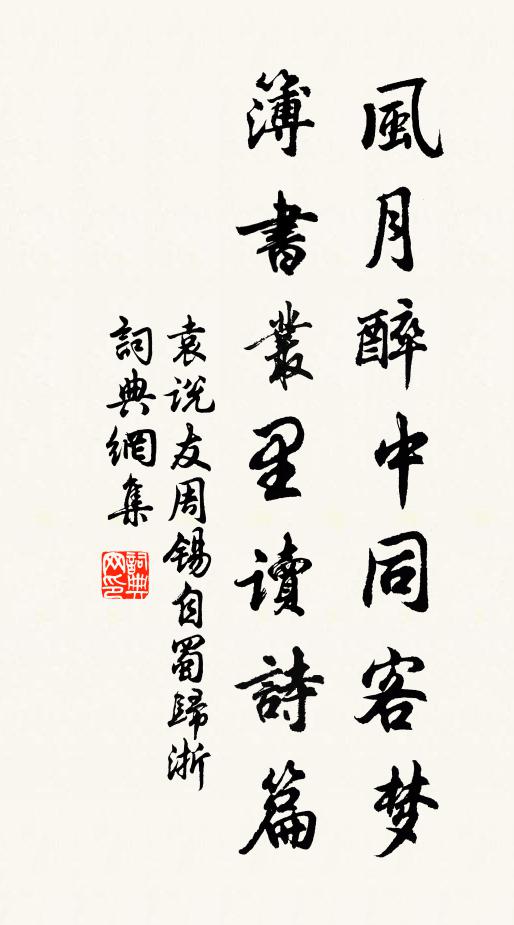 風月醉中同客梦
簿書叢里讀詩篇
袁説友周錫自蜀歸浙
詞典網集
詞典網印